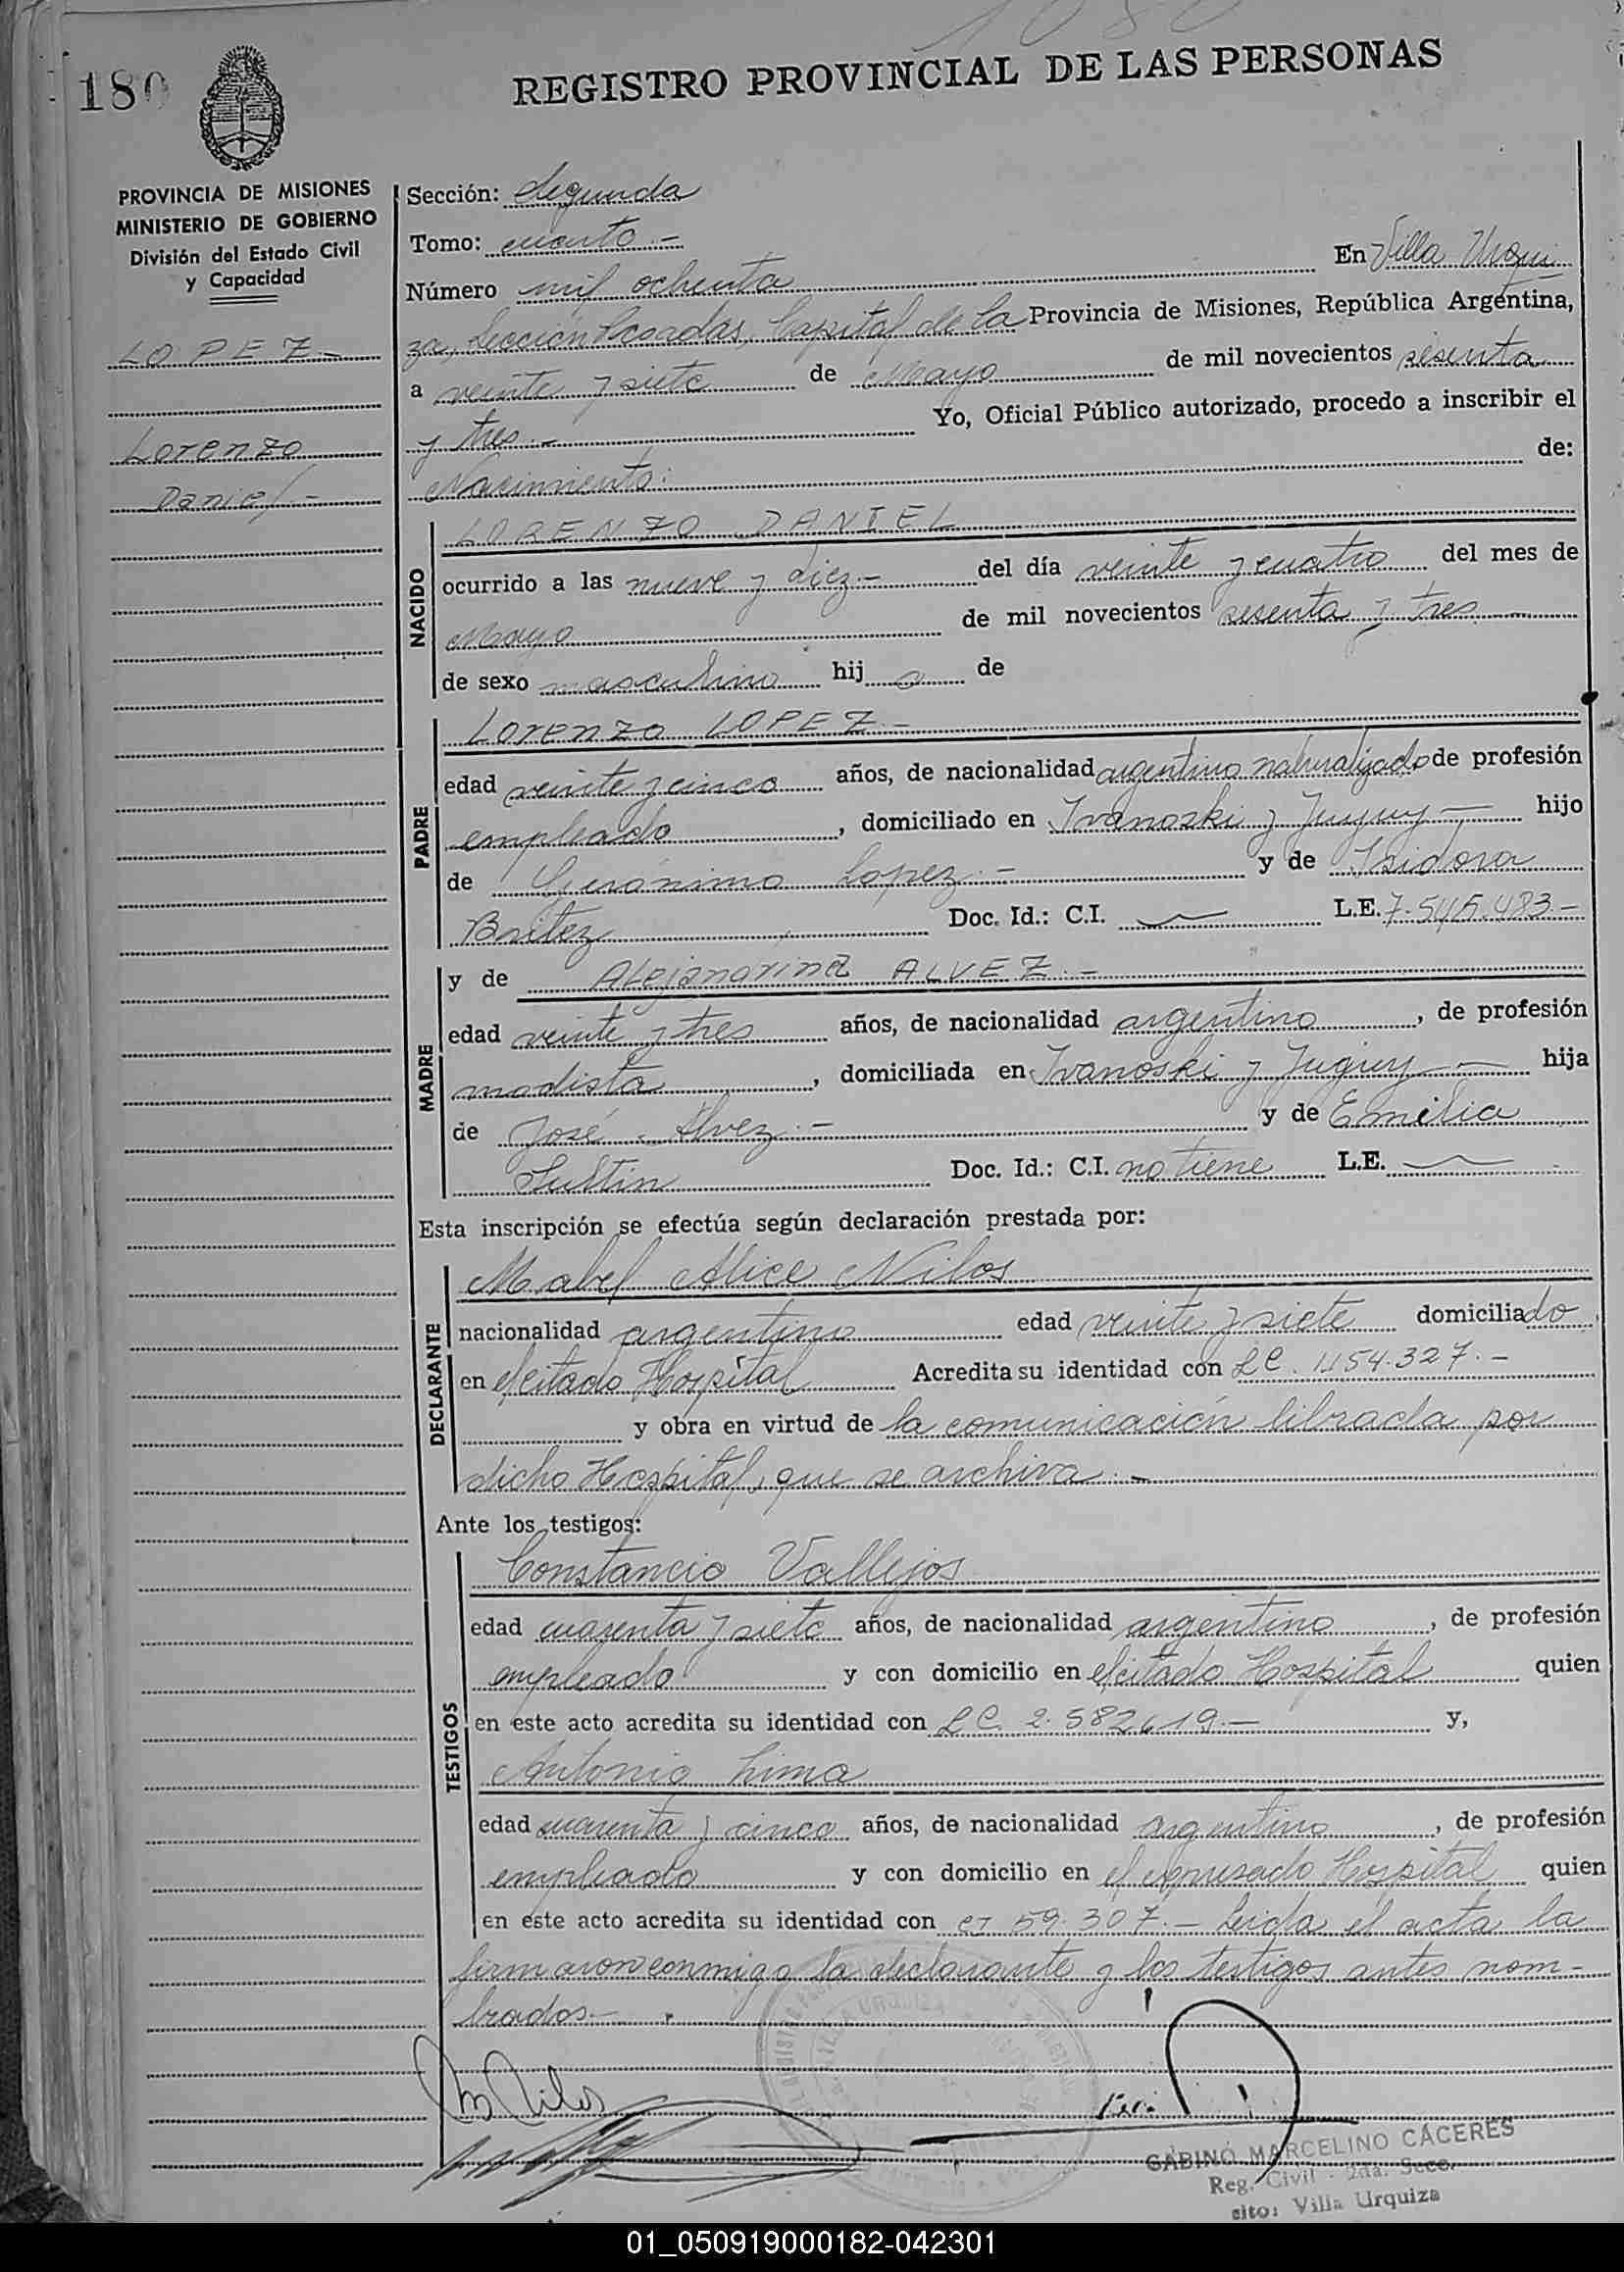 180
REGISTRO PROVINCIAL DE LAS PERSONAS
PROVINCIA DE MISIONES
MINISTERIO DE GOBIERNO
División del Estado Civil
y Capacidad
LOPEZ.-
Lorenzo
Daniel.-
Sección: Segunda
Tomo: cuarto.-
Número mil ochenta En Villa Urqui
za, Sección Posadas, Capital de la Provincia de Misiones, República Argentina,
a veinte y siete de Mayo de mil novecientos sesenta
y tres.- Yo, Oficial Público autorizado, procedo a inscribir el
Nacimiento: de:
NACIDO
LORENZO DANIEL
ocurrido a las nueve y diez.- del día veinte y cuatro del mes de
Mayo de mil novecientos sesenta y tres
de sexo masculino hij o de
PADRE
Lorenzo LOPEZ.-
edad veinte y cinco años, de nacionalidad argentino naturalizado de profesión
empleado, domiciliado en Ivanoski y Jujuy — hijo
de Gerónimo Lopez.- y de Isidora
Britez Doc. Id.: C.I. — L.E. 7.545.483.-
MADRE
y de Alejandrina ALVEZ.-
edad veinte y tres años, de nacionalidad argentina, de profesión
modista, domiciliada en Ivanoski y Jujuy — hija
de José Alvez.- y de Emilia
Doc. Id.: C.I. no tiene L.E. —
Esta inscripción se efectúa según declaración prestada por:
DECLARANTE
Mabel Alice Nilos
nacionalidad argentina edad veinte y siete domiciliado
en el citado Hospital Acredita su identidad con LC. 1.154.327.-
y obra en virtud de la comunicación librada por
dicho Hospital, que se archiva.-
Ante los testigos:
TESTIGOS
Constancio Vallejos
edad cuarenta y siete años, de nacionalidad argentino, de profesión
empleado y con domicilio en el citado Hospital quien
en este acto acredita su identidad con 2.582.619.- y,
Antonio Lima
edad cuarenta y cinco años, de nacionalidad argentino, de profesión
empleado y con domicilio en el expresado Hospital quien
en este acto acredita su identidad con CI 59.307.- Leida el acta la
firmaron conmigo la declarante y los testigos antes nom-
brados.-
M Nilos
GABINO MARCELINO CÁCERES
Reg. Civil - 2da. Secc.
sito: Villa Urquiza
01_050919000182-042301